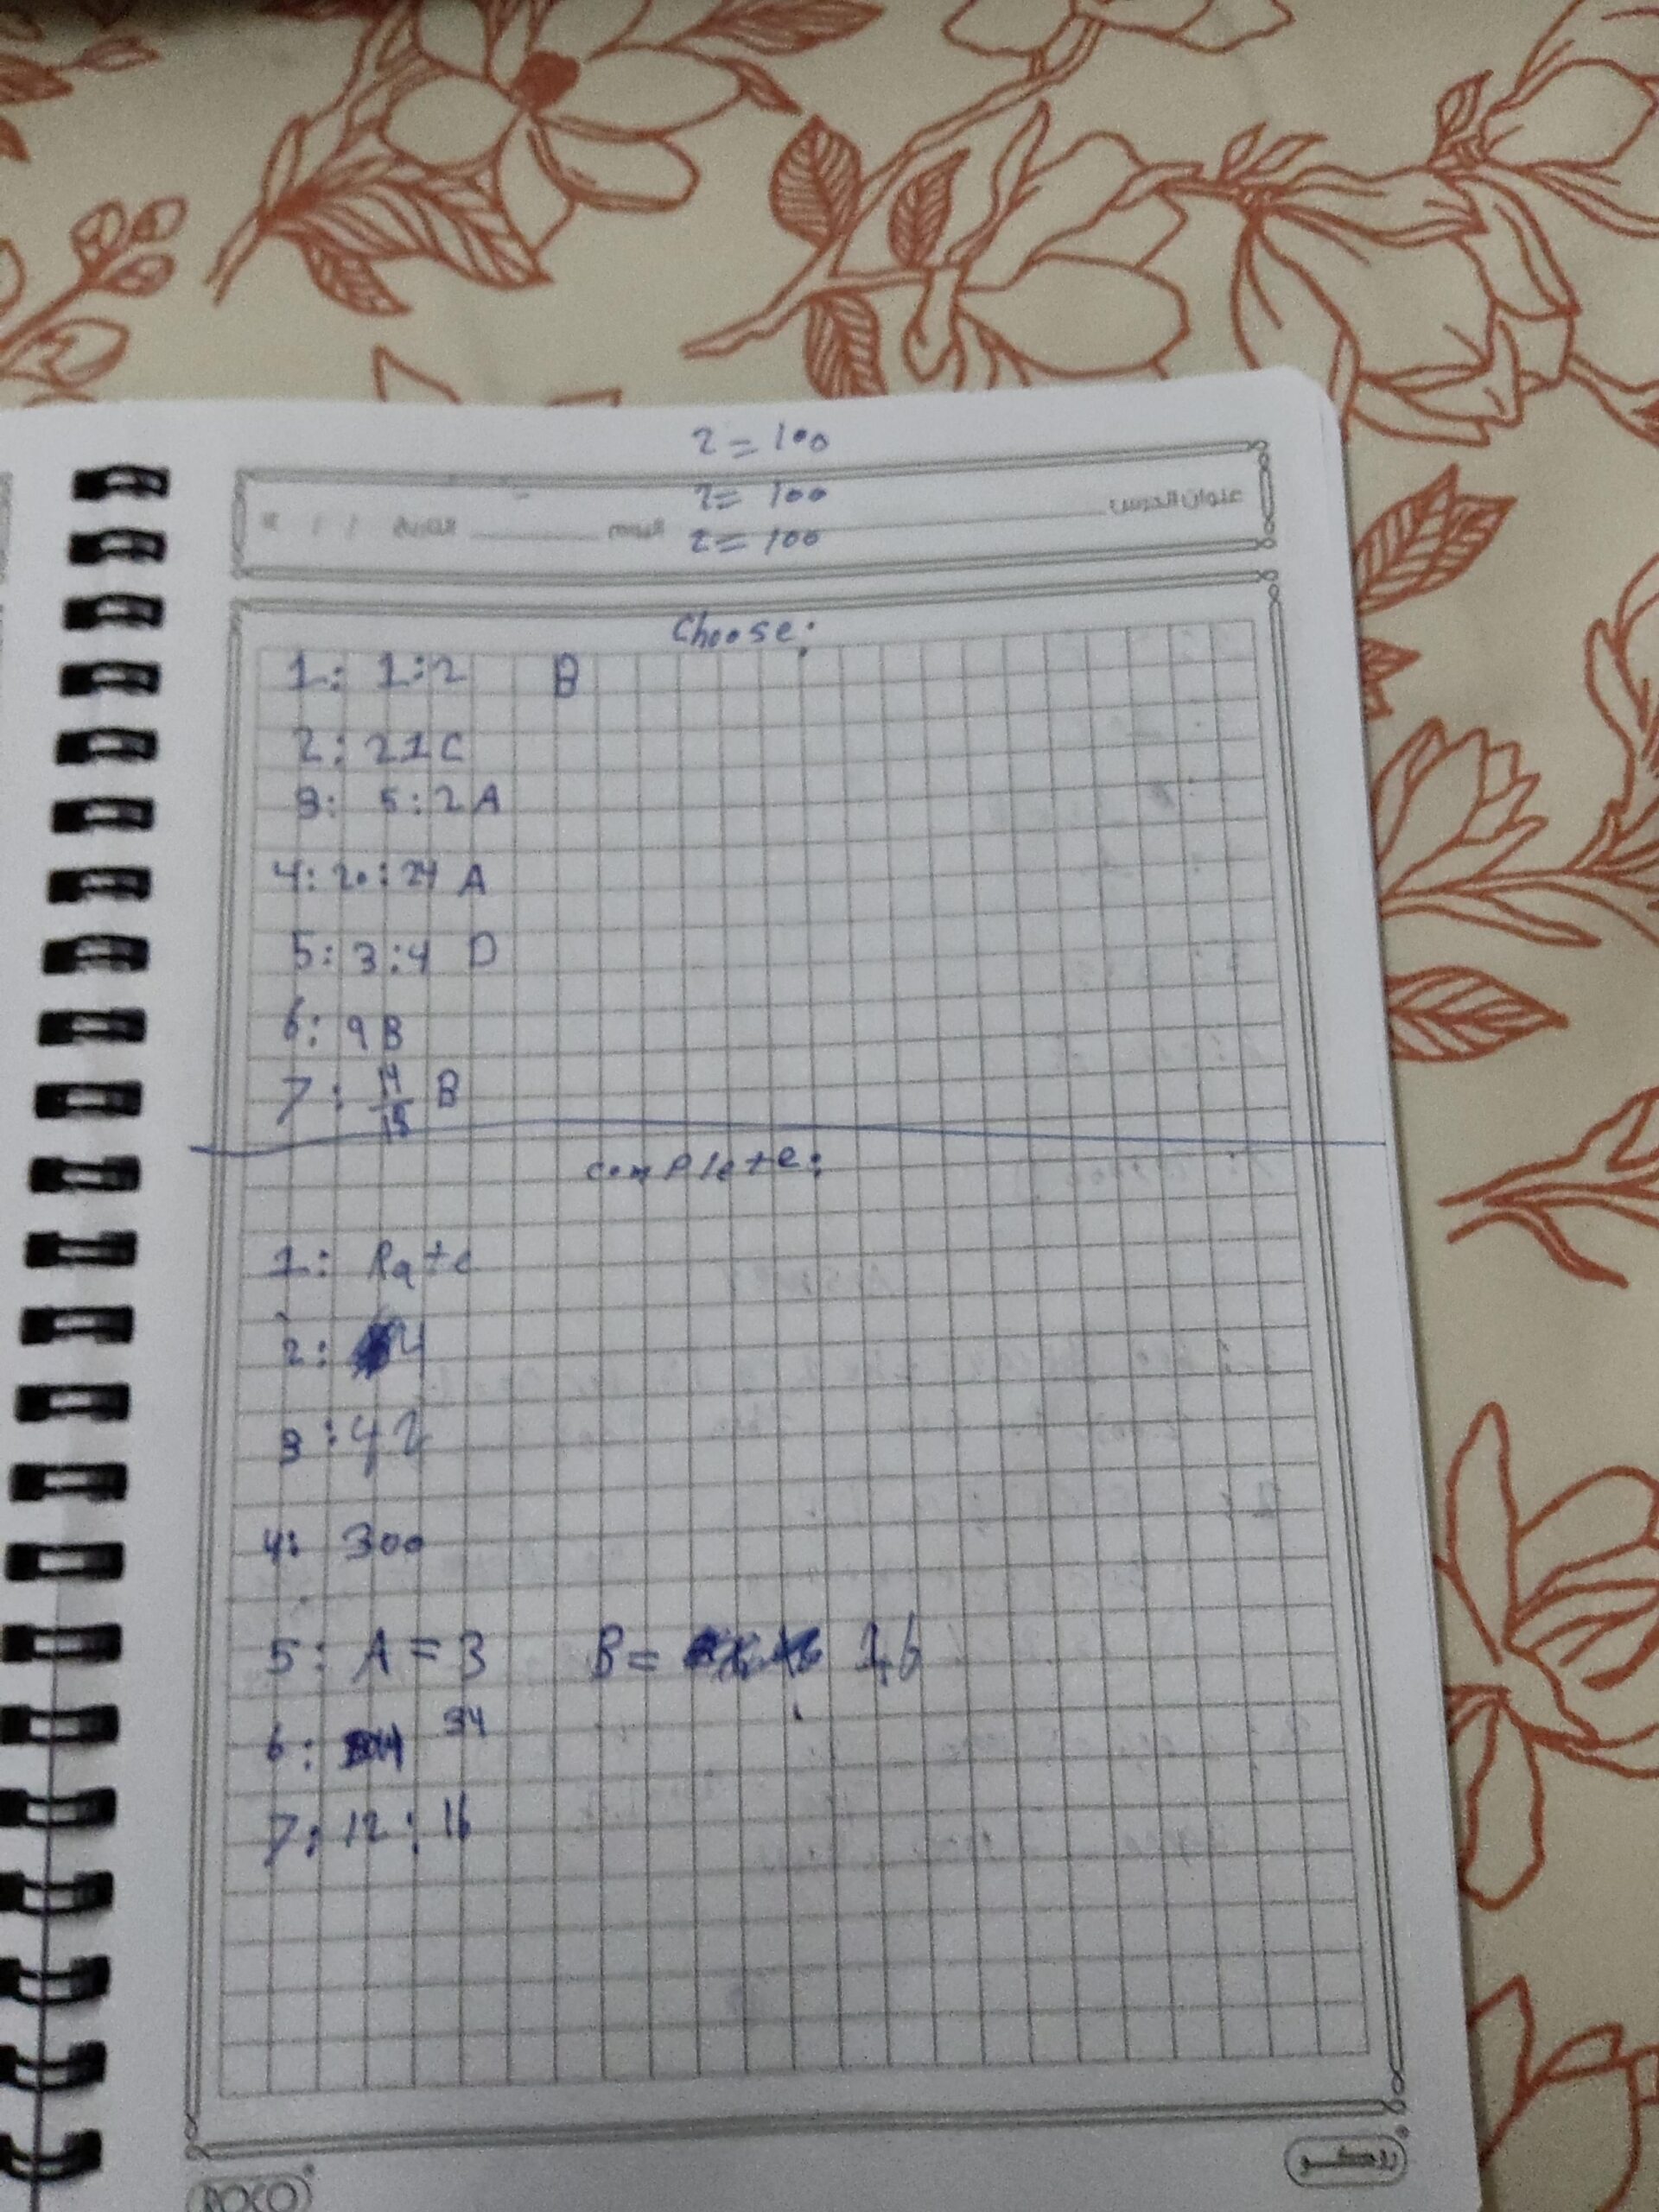 2 = 100
2 = 100
2 = 100
عنوان الدرس
Choose:
1: 1:2 B
2: 21 C
3: 5:2 A
4: 20:24 A
5: 3:4 D
6: 9 B
7: 14/15 B
complete:
1: Rate
2: 4
3: 42
4: 300
5: A = 3 B = 16
6: 34
7: 12:16
ROCO
روكو